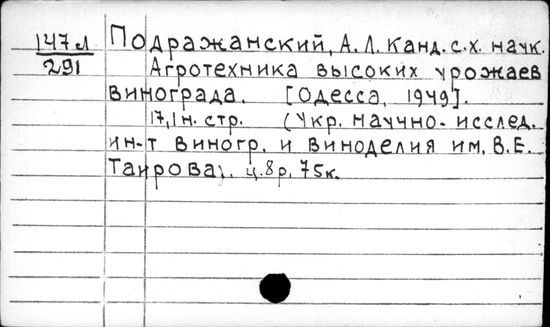 147 л Подражанский, А. Л. Канд. с.х. наук.
291 Агротехника высоких урожаев
винограда. [Одесса, 1949].
17,1 н. стр. (Укр. научно-исслед.
ин-т виногр. и виноделия им. В.Е.
Таирова). ц. 8 р. 75 к.